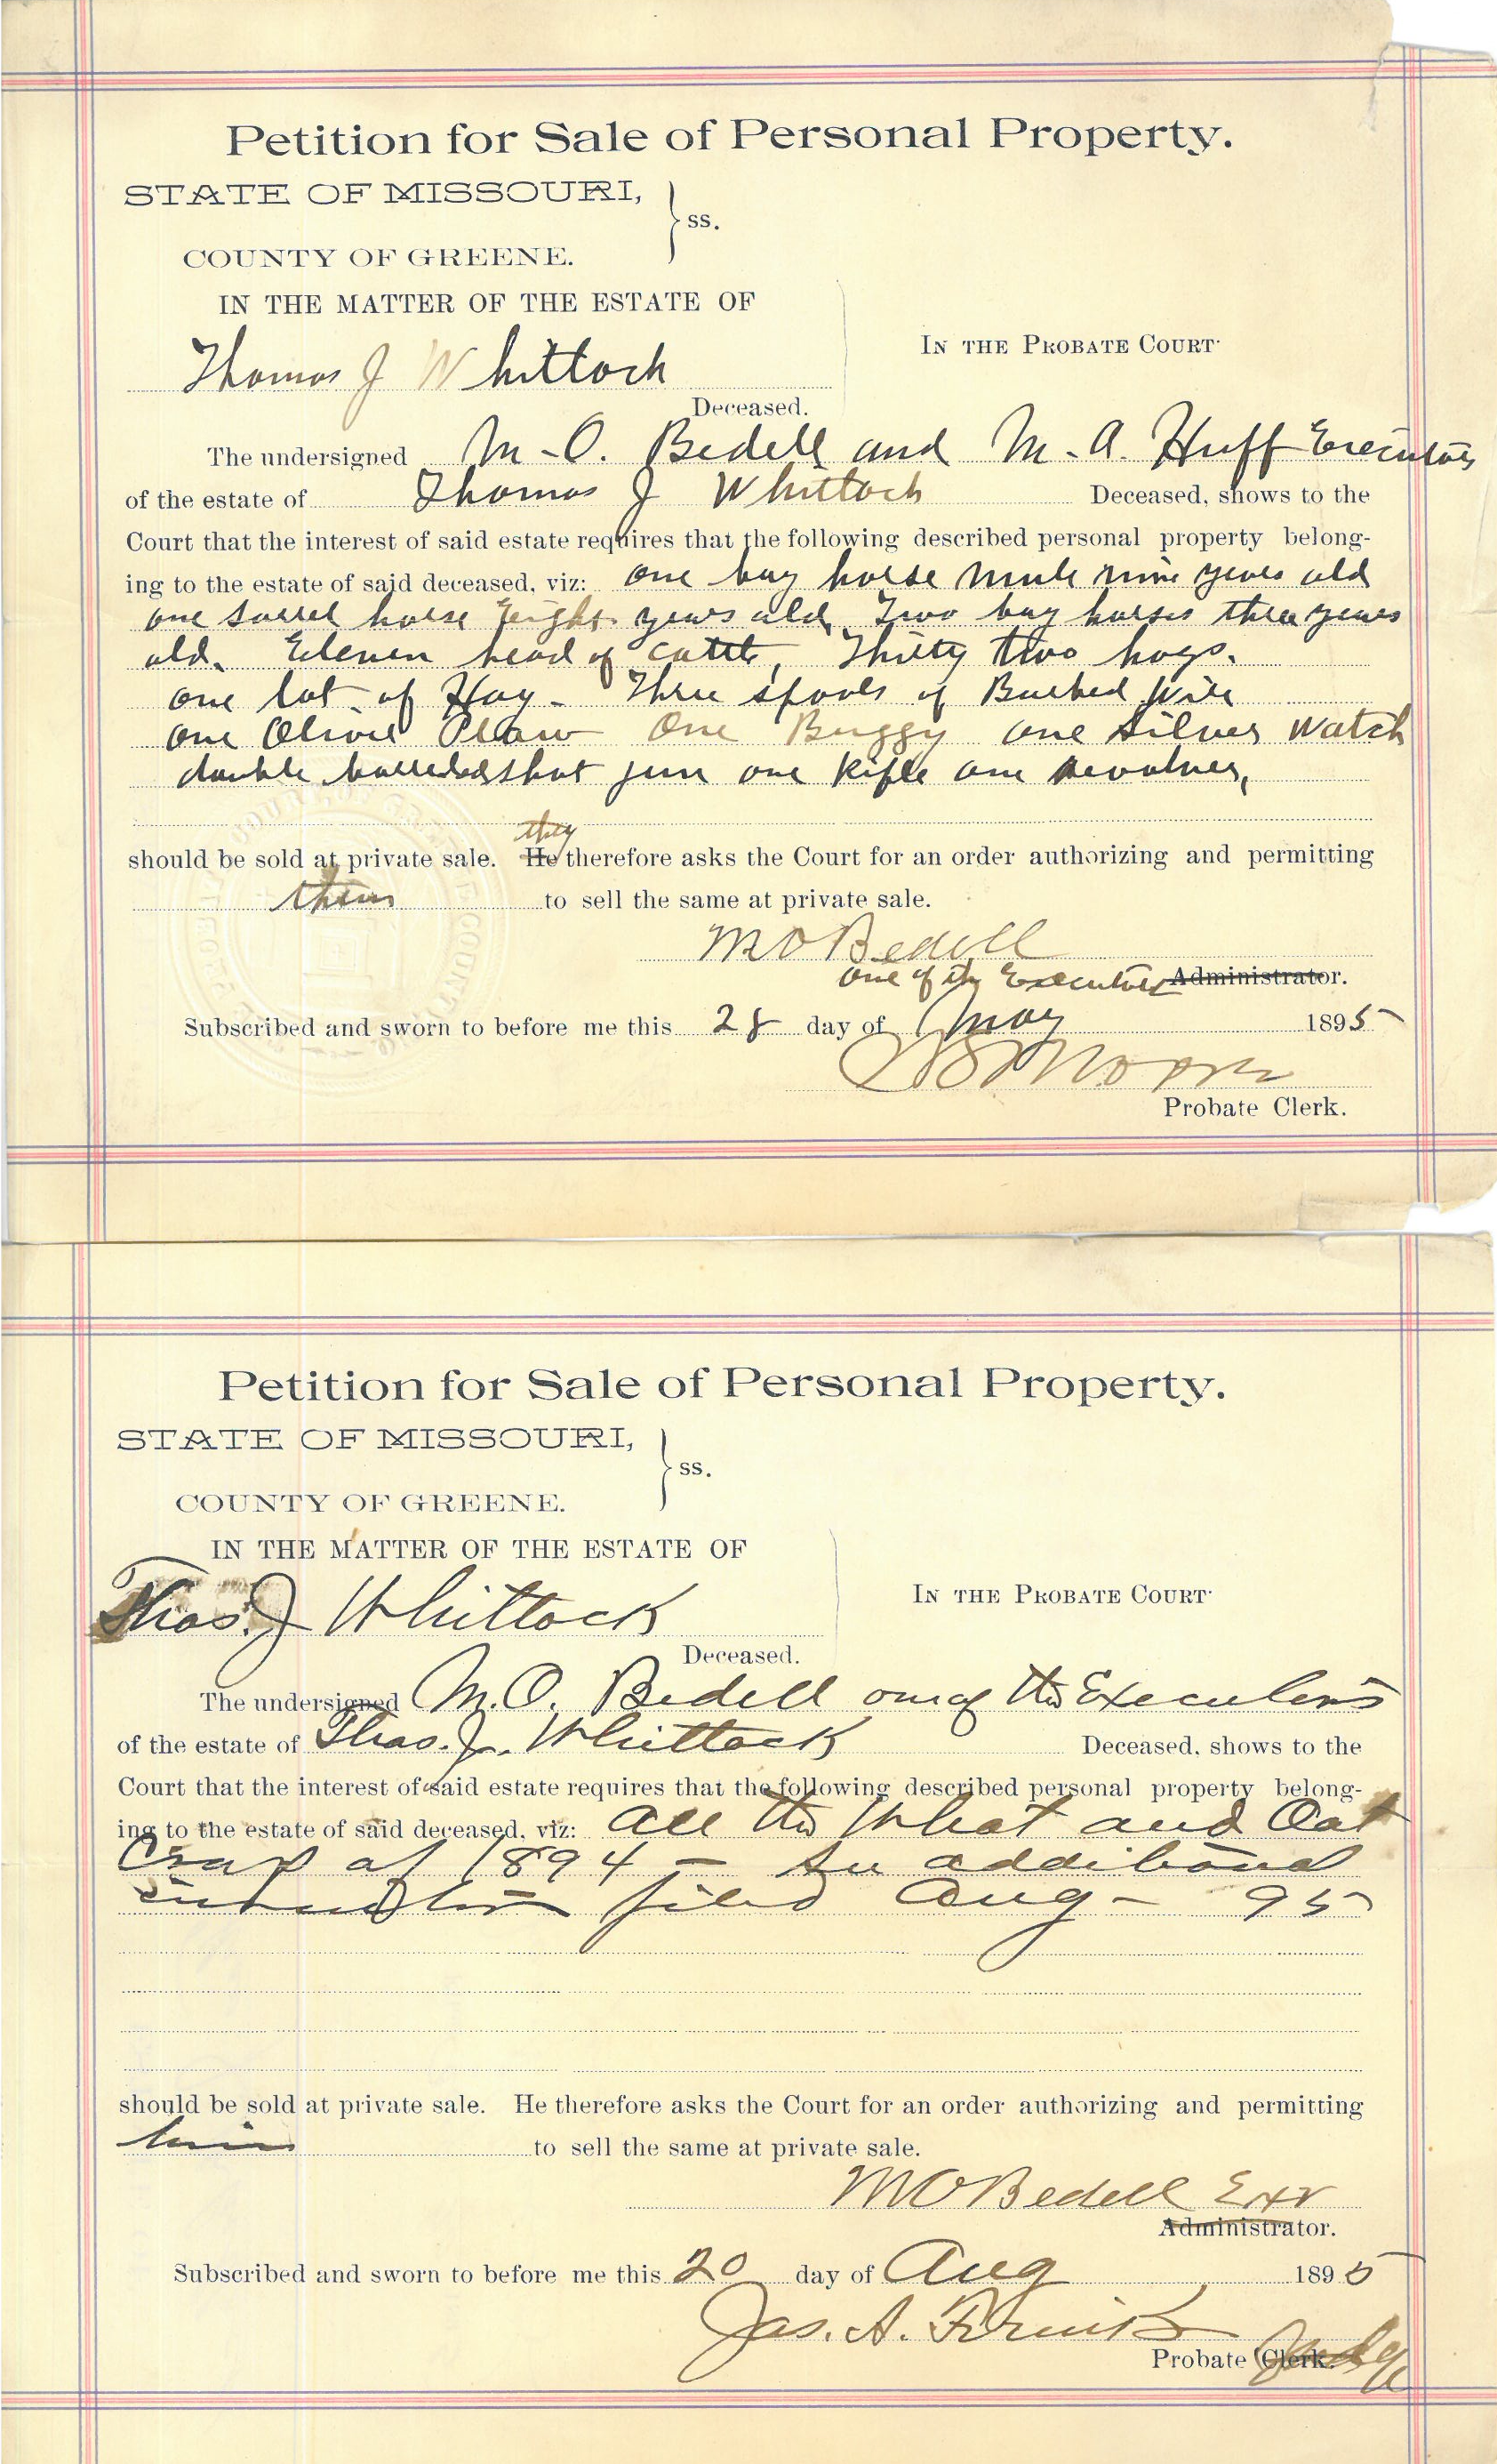 Petition for Sale of Personal Property.
STATE OF MISSOURI,
ss.
COUNTY OF GREENE.
IN THE MATTER OF THE ESTATE OF
In the Probate Court
Thomas J Whittock
Deceased.
The undersigned M-O. Bedell and M-A. Huff Executors
of the estate of Thomas J Whittock Deceased, shows to the
Court that the interest of said estate requires that the following described personal property belong-
ing to the estate of said deceased, viz: one bay horse mule nine years old
one sorrel horse Eight years old, Two bay horses three years
old. Eleven head of cattle, Thirty two hogs.
one lot of Hay - Three spools of Barbed Wire
one Oliver Plow One Buggy one Silver Watch
double barreled shot gun one Rifle one Revolver,
they
should be sold at private sale. He therefore asks the Court for an order authorizing and permitting
them to sell the same at private sale.
M O Bedell
one of the Executors Administrator.
Subscribed and sworn to before me this 28 day of May 1895
Moore
Probate Clerk.
Petition for Sale of Personal Property.
STATE OF MISSOURI,
ss.
COUNTY OF GREENE.
IN THE MATTER OF THE ESTATE OF
In the Probate Court
Thos. J Whittock
Deceased.
The undersigned M.O. Bedell one of the Executors
of the estate of Thos. J. Whittock Deceased, shows to the
Court that the interest of said estate requires that the following described personal property belong-
ing to the estate of said deceased, viz: all the Wheat and Oat
Crop of 1894 - See additional
filed Aug - 95
should be sold at private sale. He therefore asks the Court for an order authorizing and permitting
him to sell the same at private sale.
M O Bedell Exr
Administrator.
Subscribed and sworn to before me this 20 day of Aug 1895
Jas. A.
Probate Clerk. Judge